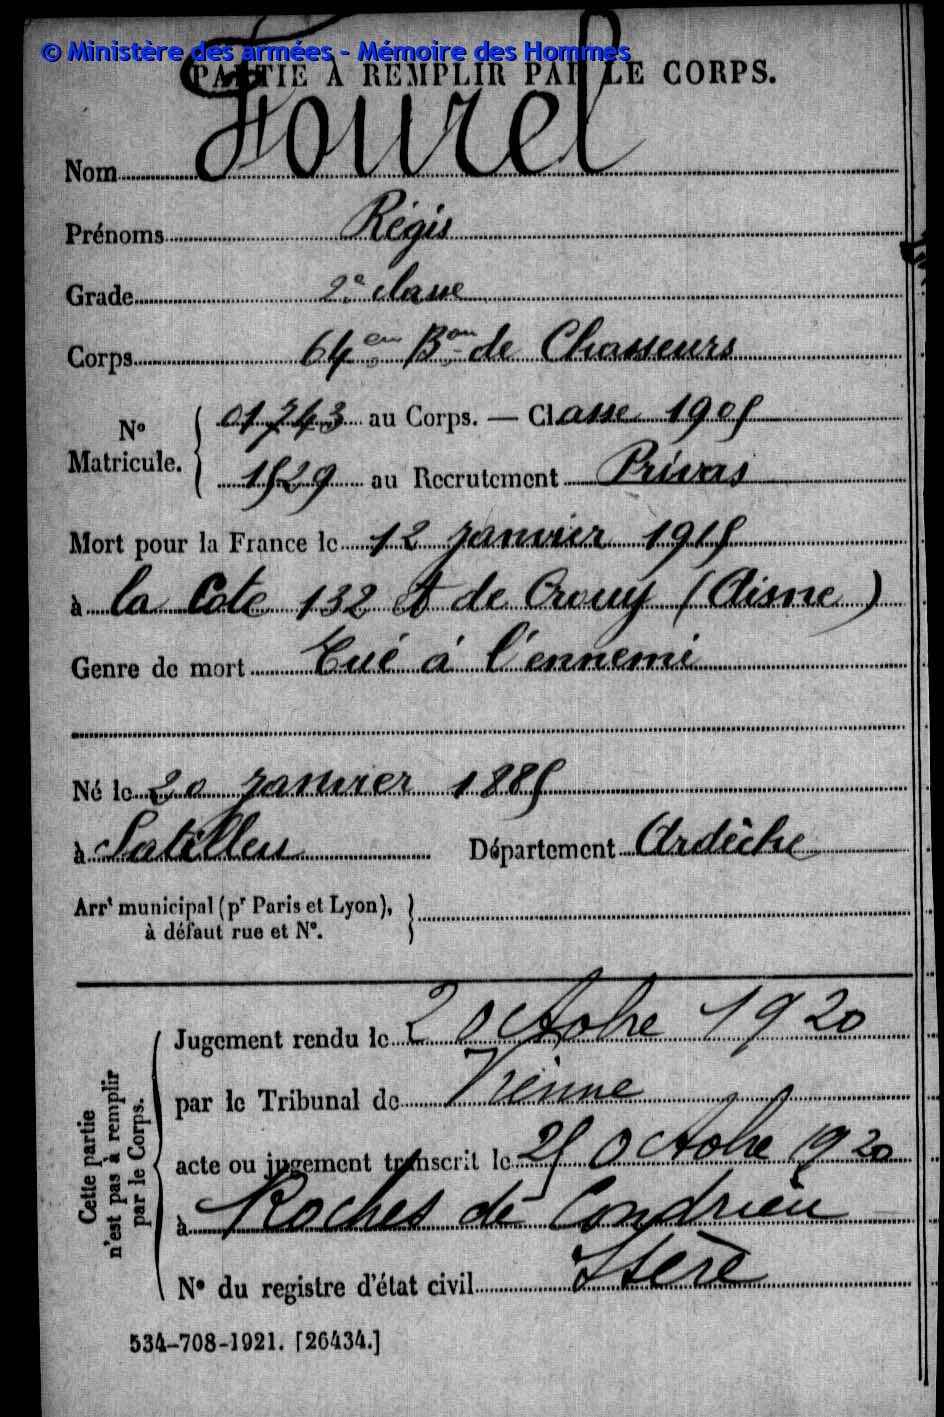 © Ministère des armées - Mémoire des Hommes
PARTIE À REMPLIR PAR LE CORPS.
Nom Fourel
Prénoms Régis
Grade 2e classe
Corps 64em Bon de Chasseurs
No Matricule. { 01743 au Corps. — Classe 1905
1529 au Recrutement Privas
Mort pour la France le 12 janvier 1915
à la Cote 132 et de Crouy (Aisne)
Genre de mort Tué à l'ennemi
Né le 20 janvier 1885
à Satilleu Département Ardèche
Arrt municipal (pr Paris et Lyon), }
à défaut rue et No.
Cette partie
n'est pas à remplir
par le Corps.
Jugement rendu le 2 octobre 1920
par le Tribunal de Vienne
acte ou jugement transcrit le 25 octobre 1920
à Roches de Condrieu
Isère
No du registre d'état civil
534-708-1921. [26434.]